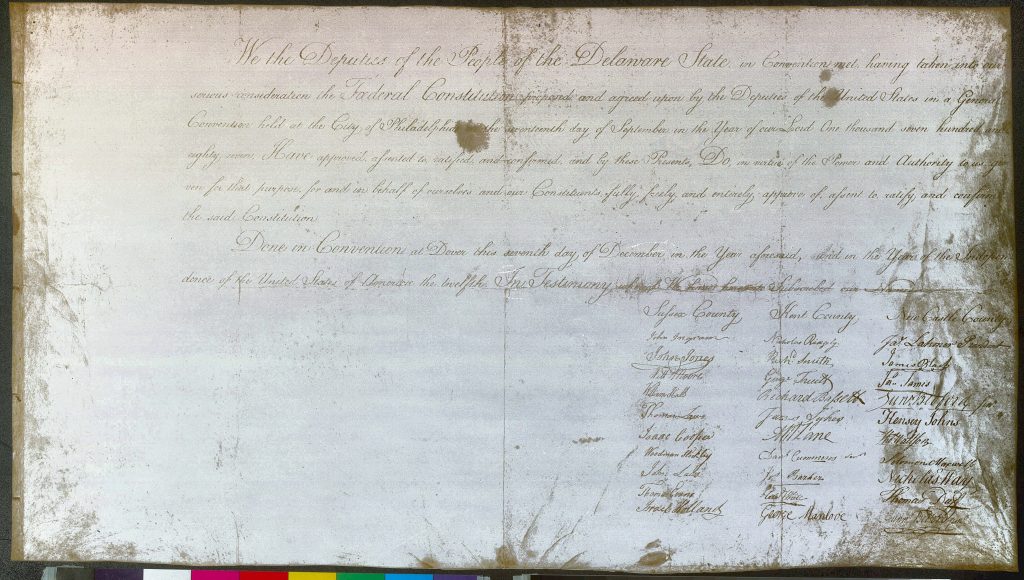 We the Deputies of the People of the Delaware State, in Convention met, having taken into our
serious consideration the Fœderal Constitution proposed and agreed upon by the Deputies of the United States in a General
Convention held at the City of Philadelphia the seventeenth day of September in the Year of our Lord One thousand seven hundred and
eighty seven, Have approved, assented to, ratified, and confirmed, and by these Presents, Do, in virtue of the Power and Authority to us gi
ven for that purpose, for and in behalf of ourselves and our Constituents, fully, freely, and entirely approve of, assent to, ratify, and confirm
the said Constitution.
Done in Convention at Dover this seventh day of December in the Year aforesaid, and in the Year of the Indepen
dence of the United States of America the twelfth. In Testimony whereof We have hereunto Subscribed our
Sussex County Kent County New Castle County
John Ingram Nicholas Ridgely Jas. Latimer President
John Jones Richd. Smith James Black
Wm. Moore George Truitt Jno. James
William Hall Richard Bassett Gunning Bedford
Thomas Laws James Sykes Kensey Johns
Isaac Cooper Allen McLane
Woodman Stokly Danl. Cummins Senr. Solomon Maxwell
John Laws Jos. Barker Nicholas Way
Thomas Evans Edwd. White Thomas Duff
Israel Holland George Manlove